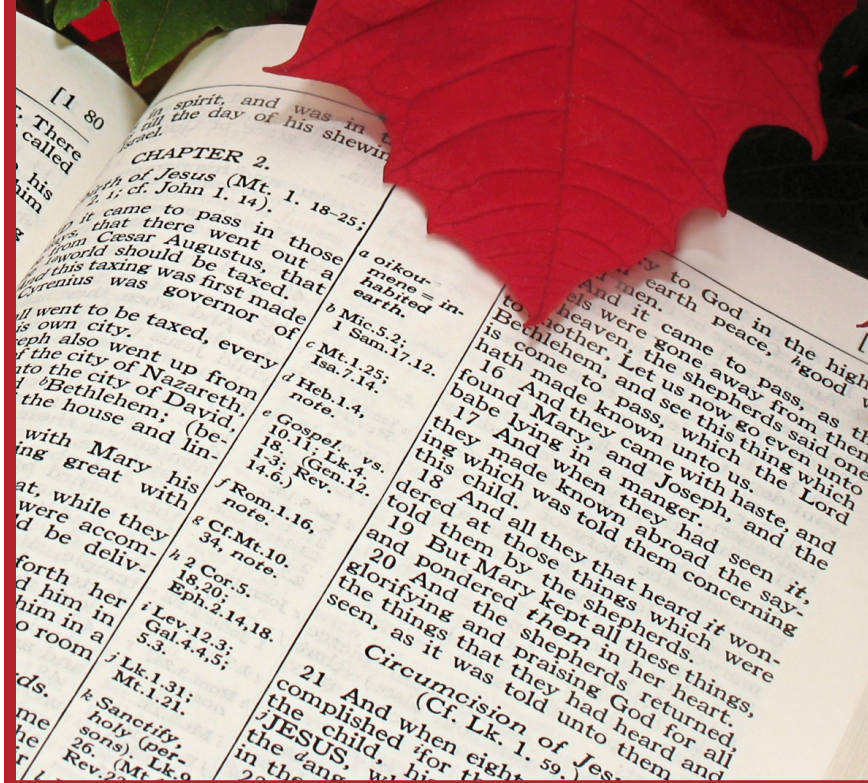 [1 80
There
called
his
him
in spirit, and was in
till the day of his shewin
CHAPTER 2.
of Jesus (Mt. 1. 18-25;
2. 1; cf. John 1. 14).
it came to pass in those
that there went out a
from Cæsar Augustus, that
world should be taxed.
this taxing was first made
Cyrenius was governor of
went to be taxed, every
own city.
also went up from
the city of Nazareth,
the city of David,
Bethlehem; (be-
the house and lin-
with Mary his
great with
while they
were accom-
be deliv-
forth her
him in
him in a
room
a oikou-
mene = in-
habited
earth.
b Mic.5.2;
1 Sam.17.12.
c Mt.1.25;
Isa.7.14.
d Heb.1.4,
note.
e Gospel. vs.
10.11; Lk.4.
18. (Gen.12.
1-3; Rev.
14.6.)
f Rom.1.16,
note.
g Cf.Mt.10.
34, note.
h 2 Cor.5.
18,20;
Eph.2.14,18.
i Lev.12.3;
Gal.4.4,5;
5.3.
j Lk.1.31;
Mt.1.21.
k Sanctify,
holy (per-
sons). Lk.9.
26. (Mt.4
to God in the high
earth peace, good
men.
And it came to pass, as
were gone away from them
heaven, the shepherds said one
to another, Let us now go even unto
Bethlehem, and see this thing which
is come to pass, which the Lord
hath made known unto us.
16 And they came with haste, and
found Mary, and Joseph, and the
babe lying in a manger.
17 And when they had seen it,
they made known abroad the say-
ing which was told them concerning
this child.
18 And all they that heard it won-
dered at those things which were
told them by the shepherds.
19 But Mary kept all these things,
and pondered them in her heart.
20 And the shepherds returned,
glorifying and praising God for all
the things that they had heard and
seen, as it was told unto them
Circumcision of Jes
(Cf. Lk. 1. 59.)
21 And when eight
complished for the
the child, his
JESUS,
the ang
in the